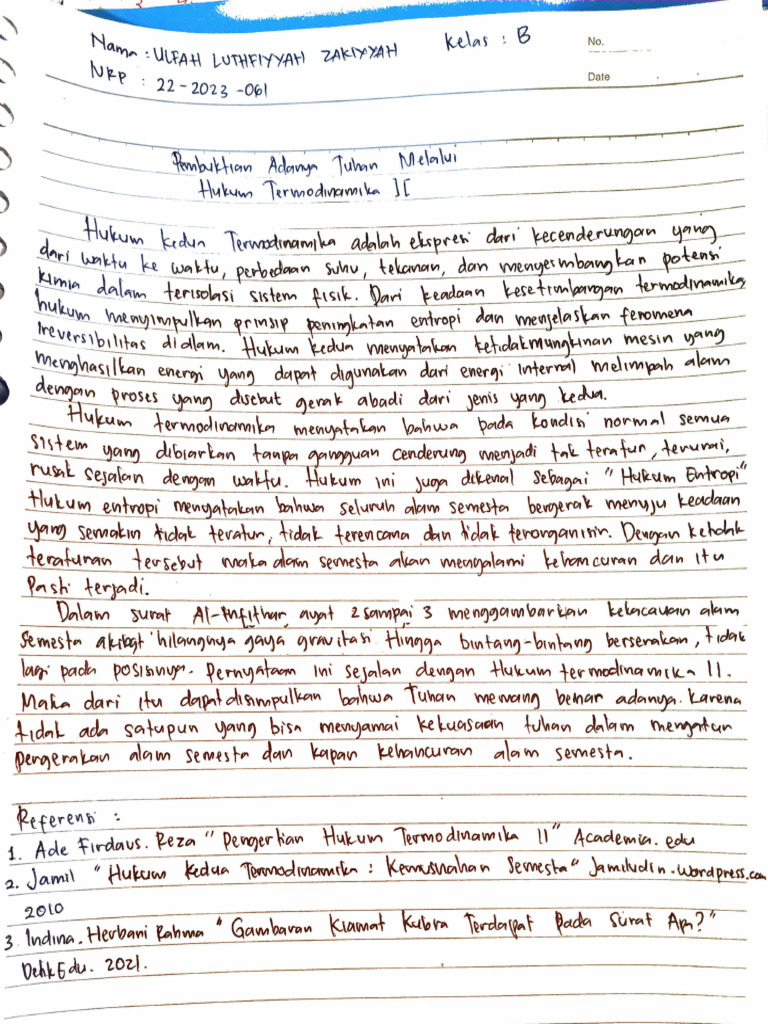 Nama : ULFAH LUTHFIYYAH ZAKIYYAH Kelas : B No.
Nrp : 22-2023-061 Date
Pembuktian Adanya Tuhan Melalui
Hukum Termodinamika II
Hukum kedua Termodinamika adalah ekspresi dari kecenderungan yang
dari waktu ke waktu, perbedaan suhu, tekanan, dan menyeimbangkan potensi
kimia dalam terisolasi sistem fisik. Dari keadaan kesetimbangan termodinamika,
hukum menyimpulkan prinsip peningkatan entropi dan menjelaskan fenomena
Ireversibilitas dialam. Hukum kedua menyatakan ketidakmungkinan mesin yang
menghasilkan energi yang dapat digunakan dari energi internal melimpah alam
dengan proses yang disebut gerak abadi dari jenis yang kedua.
Hukum termodinamika menyatakan bahwa pada kondisi normal semua
sistem yang dibiarkan tanpa gangguan cenderung menjadi tak teratur, terurai,
rusak sejalan dengan waktu. Hukum ini juga dikenal sebagai "Hukum Entropi"
Hukum entropi menyatakan bahwa seluruh alam semesta bergerak menuju keadaan
yang semakin tidak teratur, tidak terencana dan tidak terorganisir. Dengan ketidak
teraturan tersebut maka alam semesta akan mengalami kehancuran dan itu
Pasti terjadi.
Dalam surat Al-Infithar ayat 2 sampai 3 menggambarkan kekacauan alam
semesta akibat hilangnya gaya gravitasi Hingga bintang-bintang berserakan, tidak
lagi pada posisinya. Pernyataan ini sejalan dengan Hukum termodinamika II.
Maka dari itu dapat disimpulkan bahwa Tuhan memang benar adanya. Karena
tidak ada satupun yang bisa menyamai kekuasaan tuhan dalam mengatur
pengerakan alam semesta dan kapan kehancuran alam semesta.
Referensi :
1. Ade Firdaus. Reza "Pengertian Hukum Termodinamika II" Academia.edu
2. Jamil "Hukum Kedua Termodinamika : Kemusnahan Semesta" Jamiludin.wordpress.com
2010
3. Indina. Herbani Rahma "Gambaran Kiamat Kubra Terdapat Pada Surat Apa?"
DetikEdu. 2021.